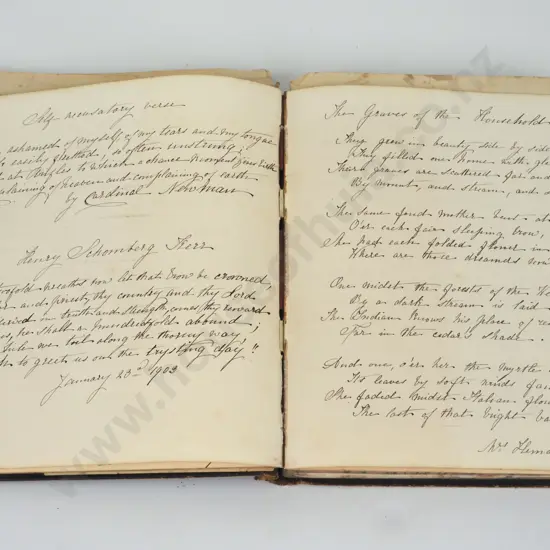 Self accusatory verse
ashamed of myself, of my tears and my tongue
easily fretted, so often unstrung
at trifles to which a chance moment gave birth
complaining of heaven and complaining of earth
by Cardinal Newman
Henry Schomberg Kerr
wreaths now let that brow be crowned,
and priest, thy country and thy Lord
in truth and strength, comes thy reward
he shall a hundredfold abound;
we toil along the thorny way
to greet us on the trysting day."
January 23rd 1903
The Graves of the Household
They grew in beauty side by side
They filled our home with glee
Their graves are scattered far and
By mount, and stream, and
The same fond mother bent at
O'er each fair sleeping brow,
She had each folded flower in
Where are those dreamers now
One midst the forests of the We
By a dark stream is laid
The Indian knows his place of re
Far in the cedar's shade.
And one, o'er her the myrtle
Its leaves by soft winds fan
She faded midst Italian flow
The last of that bright ba
Mrs Hema